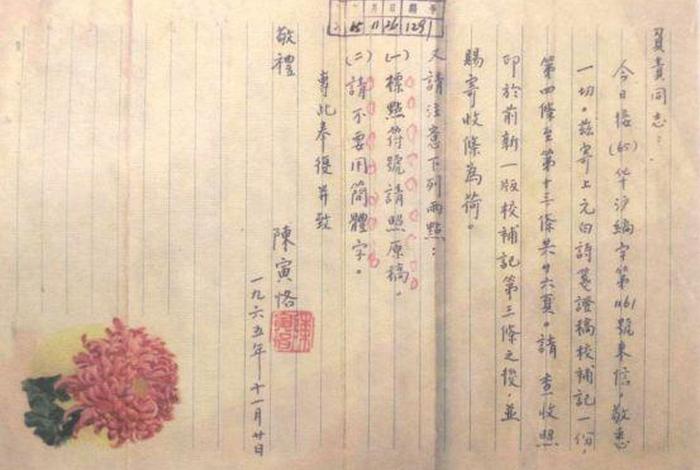 負責同志：
今日接(65)华沪編字第1161號來信，敬悉
一切。兹寄上元白詩箋證稿校補記一份，
第四條至第十三條共十六頁。請查收照
印於前新一版校補記第三條之後，並
賜寄收條為荷。
又請注意下列兩點：
(一)標點符號請照原稿。
(二)請不要用簡體字。
專此奉復并致
敬禮
陳寅恪
一九六五年十一月廿日
月 日 編 字
65 11 26 1291